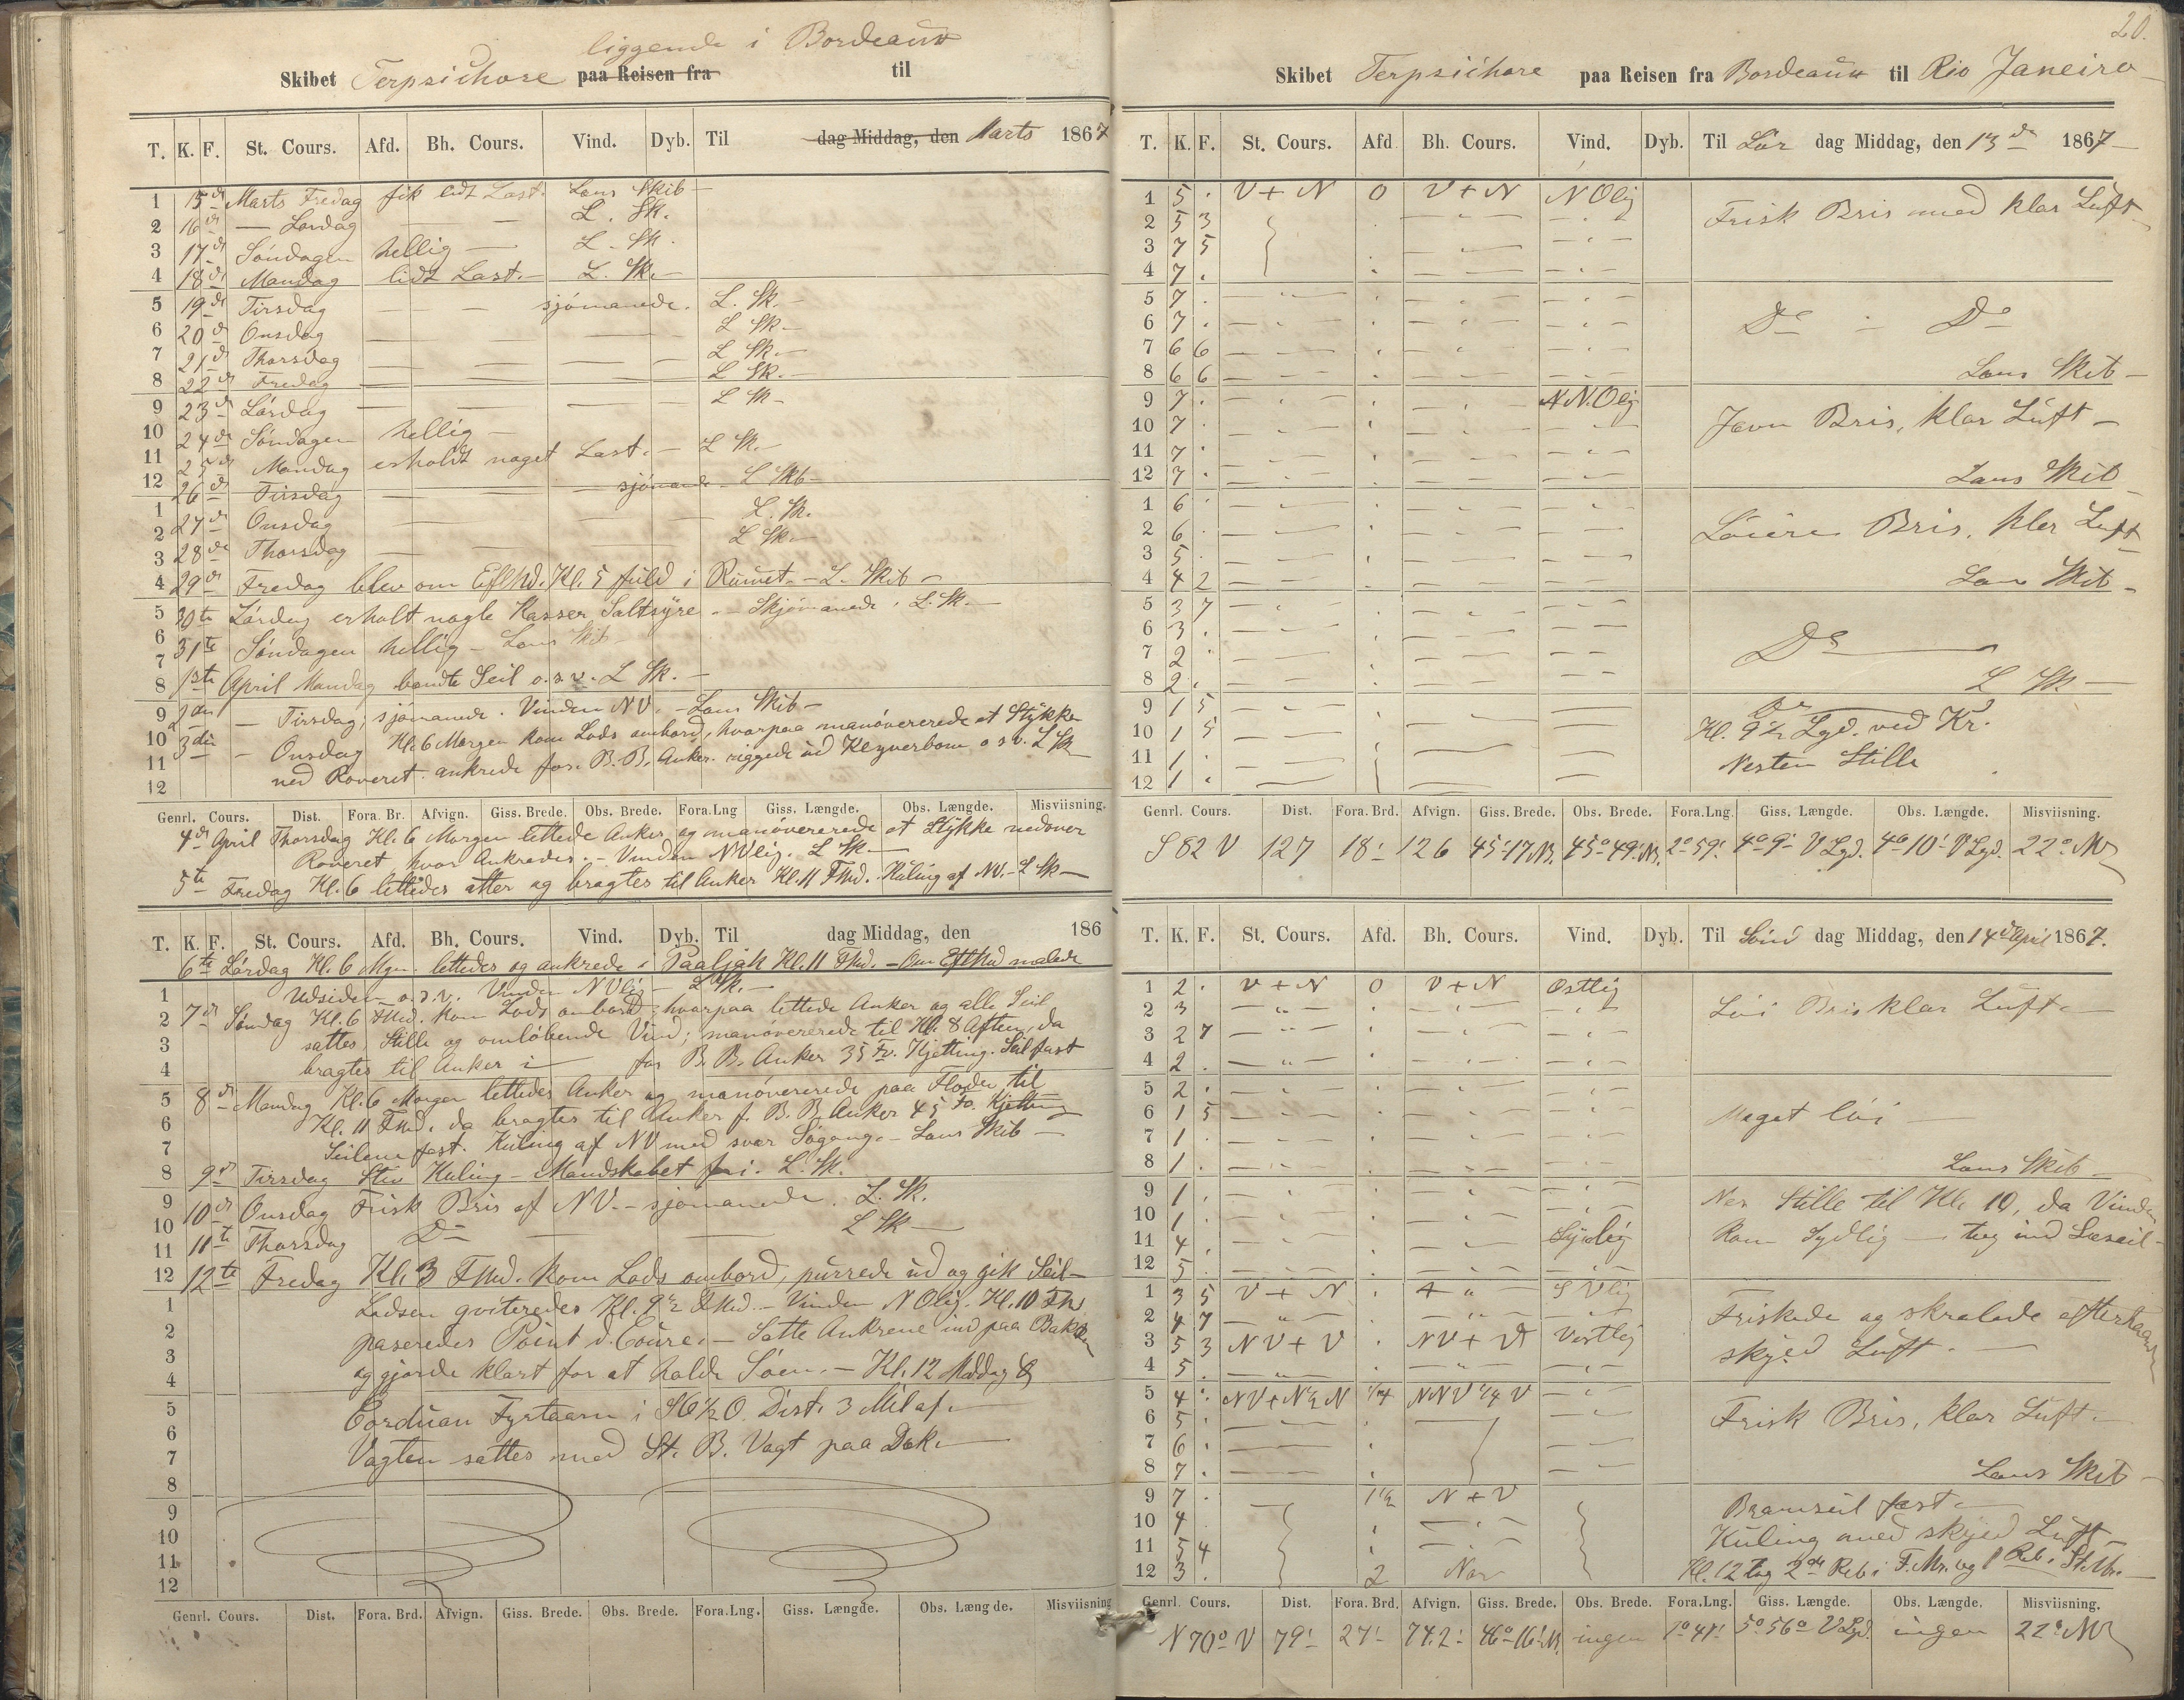 liggende i Bordeaux
Skibet Terpsichore paa Reisen fra til
T. K. F. St. Cours. Afd. Bh. Cours. Vind. Dyb. Til dag Middag, den Marts 1867
1 15de Marts Fredag fik lidt Last. Lens Skib —
2 16de — Lørdag — — L. Sk.
3 17de Søndagen hellig — L. Sk.
4 18de Mandag lidt Last. — L. Sk. —
5 19de Tirsdag — — — sjömanede. L. Sk. —
6 20de Onsdag — — — — L Sk —
7 21de Thorsdag — — — — L Sk. —
8 22de Fredag — — — — L Sk. —
9 23de Lördag — — — — L Sk —
10 24de Søndagen hellig —
11 25de Mandag erholdt noget Last. — L Sk. —
12 26de Tirsdag — — — sjömanede — L Skb —
1 27de Onsdag — — — L. Sk.
2 28de Thorsdag — — — L Sk. —
3
4 29de Fredag blev om Eftmd. Kl. 5 fuld i Rumet. — L. Skib —
5 30te Lördag erholt nogle Kasser Saltsyre. — Skjömanede. L. Sk. —
6 31te Søndagen hellig — Lens Skib
7
8 1ste April Mandag bendte Seil o.s.v. L Sk. —
9 2den — Tirsdag, sjömanede. Vinden NV. — Lens Skib —
10 3die — Onsdag Kl. 6 Morgen kom Lods ombord, hvorpaa manövererede et Stykke
11 ned Roveret. ankrede for B. B. Anker. riggede ud Klyverbom o s v. L Sk
12
Genrl. Cours. Dist. Fora. Br. Afvign. Giss. Brede. Obs. Brede. Fora. Lng Giss. Længde. Obs. Længde. Misviisning.
4de April Thorsdag Kl. 6 Morgen lettede Anker og manövererede et Stykke nedover
Roveret, hvor Ankredes. — Vinden NVlig. L Sk. —
5te Fredag Kl. 6 lettedes atter og bragtes til Anker Kl. 11 Fmd. Kuling af NV. — L Sk —
T. K. F. St. Cours. Afd. Bh. Cours. Vind. Dyb. Til dag Middag, den 186
6te Lördag Kl. 6 Mgn. lettedes og ankrede i Paaljak Kl. 11 Fmd. — Om Eftmd malede
1 Udsiden o.s.v. Vinden NVlig — L Sk. —
2 7de Søndag Kl. 6 Fmd. kom Lods ombord, hvorpaa lettede Anker og alle Seil
3 sattes. Stille og omlöbende Vind; manövererede til Kl. 8 Aften, da
4 bragtes til Anker i — for B. B. Anker 35 Fv. Kjetting. Seil fast
5 8de Mandag Kl. 6 Morgen lettedes Anker og manövererede paa Floden til
6 Kl. 11 Fmd. da bragtes til Anker f. B. B. Anker 45 Fv. Kjetting
7 Seilene fast. Kuling af NV med svær Søgang. — Lens Skib —
8 9de Tirsdag Stiv Kuling — Mandskabet fri. L. Sk.
9 10de Onsdag Frisk Bris af NV. — sjömanede. L. Sk.
10 11te Thorsdag Do — — L Sk —
11
12 12te Fredag Kl. 3 Fmd. kom Lods ombord, purrede ud og gik Seil —
1 Lodsen qviteredes Kl. 9½ Fmd. — Vinden NOlig. Kl. 10 Fm
2 paseredes Point d. Coure. — Satte Ankrene ind paa Bakken
3 og gjorde klart for at holde Søen. — Kl. 12 Middag &
4
5 Corduan Fyrtaarn i SO½O. Dist. 3 Mil af. —
6
7 Vagten sattes med St. B. Vagt paa Dæk. —
8
9
10
11
12
Genrl. Cours. Dist. Fora. Brd. Afvign. Giss. Brede. Obs. Brede. Fora. Lng. Giss. Længde. Obs. Længde. Misviisning
20.
Skibet Terpsichore paa Reisen fra Bordeaux til Rio Janeiro —
T. K. F. St. Cours. Afd Bh. Cours. Vind. Dyb. Til Lör dag Middag, den 13de 1867 —
1 5 . V + N 0 V + N NOlig Frisk Bris med klar Luft —
2 5 3
3 7 5
4 7 .
5 7 .
6 7 . Do — Do
7 6 6
8 6 6 Lens Skib —
9 7 . NN.Olig
10 7 . Jevn Bris, klar Luft —
11 7 .
12 7 . Lens Skib
1 6 .
2 6 . Löiere Bris, klar Luft
3 5 .
4 4 2 Lens Skib —
5 3 7
6 3 .
7 2 . Do —
8 2 . L Sk —
9 1 5 Do
10 1 5 Kl. 9½ Lgd. ved Kr.
11 1 . Nesten Stille
12 1 .
Genrl. Cours. Dist. Fora. Brd. Afvign. Giss. Brede. Obs. Brede. Fora. Lng. Giss. Længde. Obs. Længde. Misviisning.
S 82 V 127 18' 126 45° 17' N. 45° 49' N. 2° 59' 4° 9' V Lgd. 4° 10' V Lgd. 22° NV
T. K. F. St. Cours. Afd. Bh. Cours. Vind. Dyb. Til Sönd dag Middag, den 14de April 1867.
1 2 . V + N 0 V + N Ostlig
2 3 Löi Bris klar Luft —
3 2 7
4 2 .
5 2 .
6 1 5 Meget löi —
7 1 .
8 1 . Lens Skib —
9 1 . Nes Stille til Kl. 10, da Vinden
10 1 .
11 4 . Sydlig kom Sydlig — tog ind Læseil —
12 5 .
1 3 5 V + N . SVlig
2 4 7 Friskede og skralede efterhaanden
3 5 3 NV + V . NV + V Vestlig
4 5 . skyed Luft. —
5 4 . NV + N½N ¼ NNV ¼ V
6 5 . Frisk Bris, klar Luft. —
7 6 .
8 7 . Lens Skib —
9 7 . 1½ N + V Bramseil fast —
10 4 Kuling med skyed Luft —
11 5 4
12 3 . 2 Nor Kl. 12 tog 2de Reb i F. Mr. og 1 Reb i St. Mr. —
Genrl. Cours. Dist. Fora. Brd. Afvign. Giss. Brede. Obs. Brede. Fora. Lng. Giss. Længde. Obs. Længde. Misviisning.
N 70° V 79' 27' 74.2' 46° 16' N. ingen 1° 47' 5° 56' V Lgd. ingen 22° NV